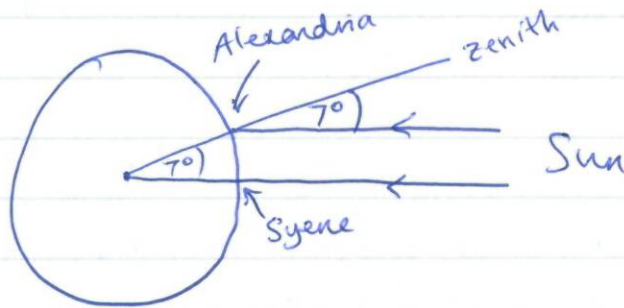 Alexandria
zenith
7°
7°
Sun
Syene